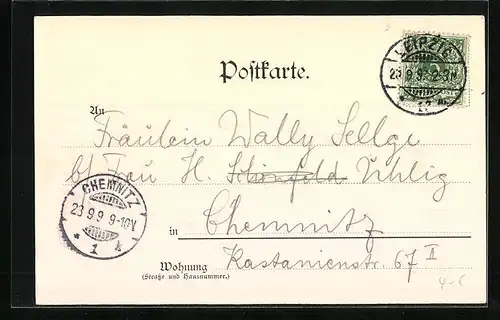 Postkarte.
LEIPZIG
23 9 9
An
Fräulein Wally Sellge
b/ Frau H. Schönfeld Uhlig
CHEMNITZ
23 9 9 9-10V
* 1 k
in Chemnitz
Wohnung Kastanienstr. 67 II
(Straße und Hausnummer.)
4-6